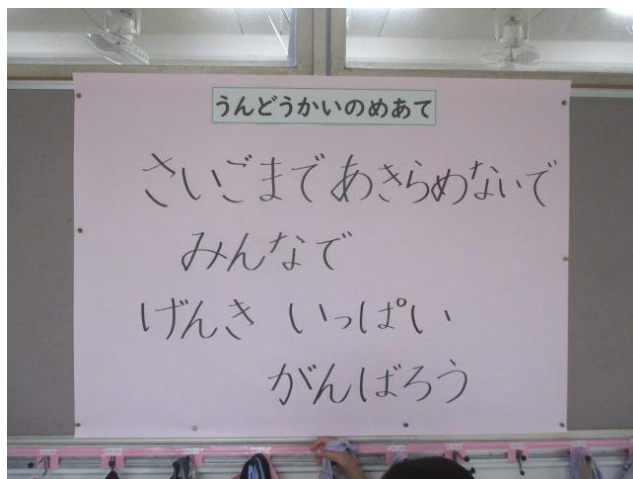 うんどうかいのめあて
さいごまであきらめないで
みんなで
げんき いっぱい
がんばろう